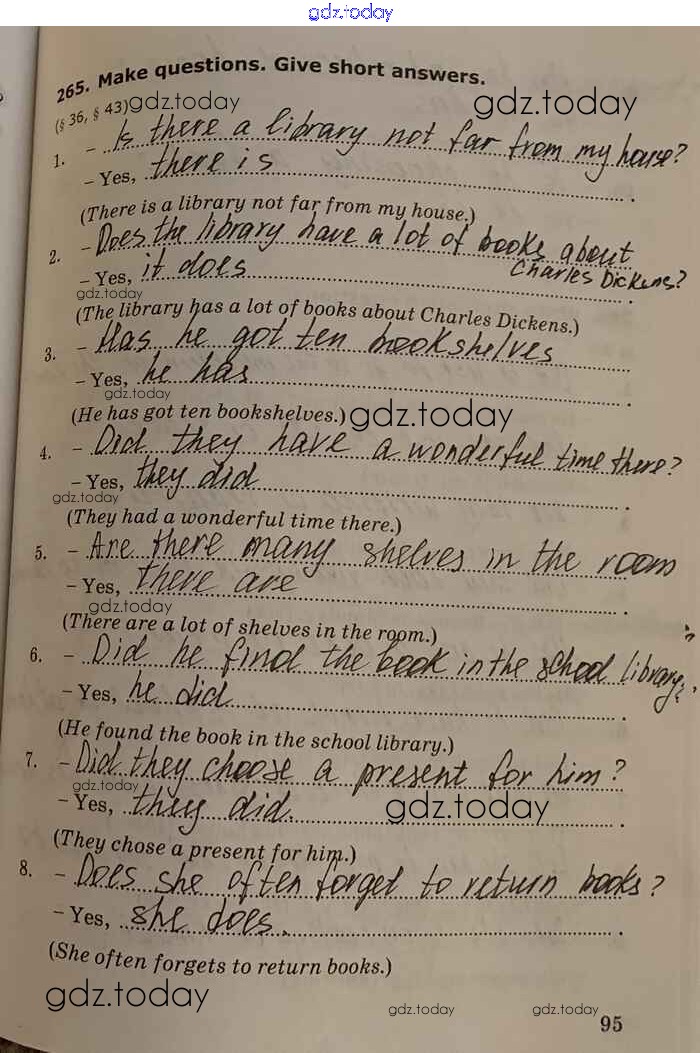 gdz.today
265. Make questions. Give short answers.
(§ 36, § 43) gdz.today gdz.today
1. – Is there a library not far from my house?
– Yes, there is .
(There is a library not far from my house.)
2. – Does the library have a lot of books about
Charles Dickens?
– Yes, it does .
gdz.today
(The library has a lot of books about Charles Dickens.)
3. – Has he got ten bookshelves
– Yes, he has .
gdz.today
(He has got ten bookshelves.) gdz.today
4. – Did they have a wonderful time there?
– Yes, they did .
gdz.today
(They had a wonderful time there.)
5. – Are there many shelves in the room
– Yes, there are .
gdz.today
(There are a lot of shelves in the room.)
6. – Did he find the book in the school library?
– Yes, he did .
(He found the book in the school library.)
7. – Did they choose a present for him?
gdz.today
– Yes, they did. .
gdz.today
(They chose a present for him.)
8. – Does she often forget to return books?
– Yes, she does. .
(She often forgets to return books.)
gdz.today gdz.today gdz.today
95